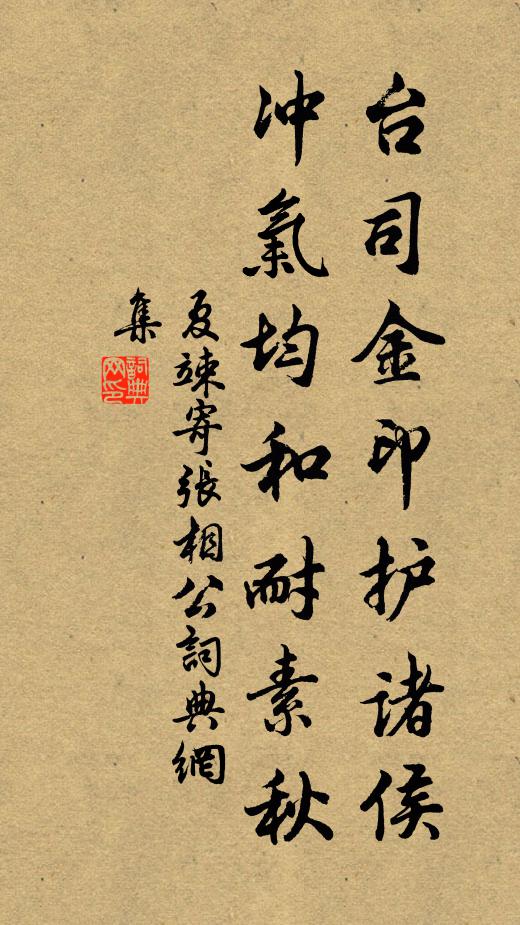 台司金印护诸侯
冲氣均和耐素秋
夏竦寄張相公詞典網
集
詞典网印